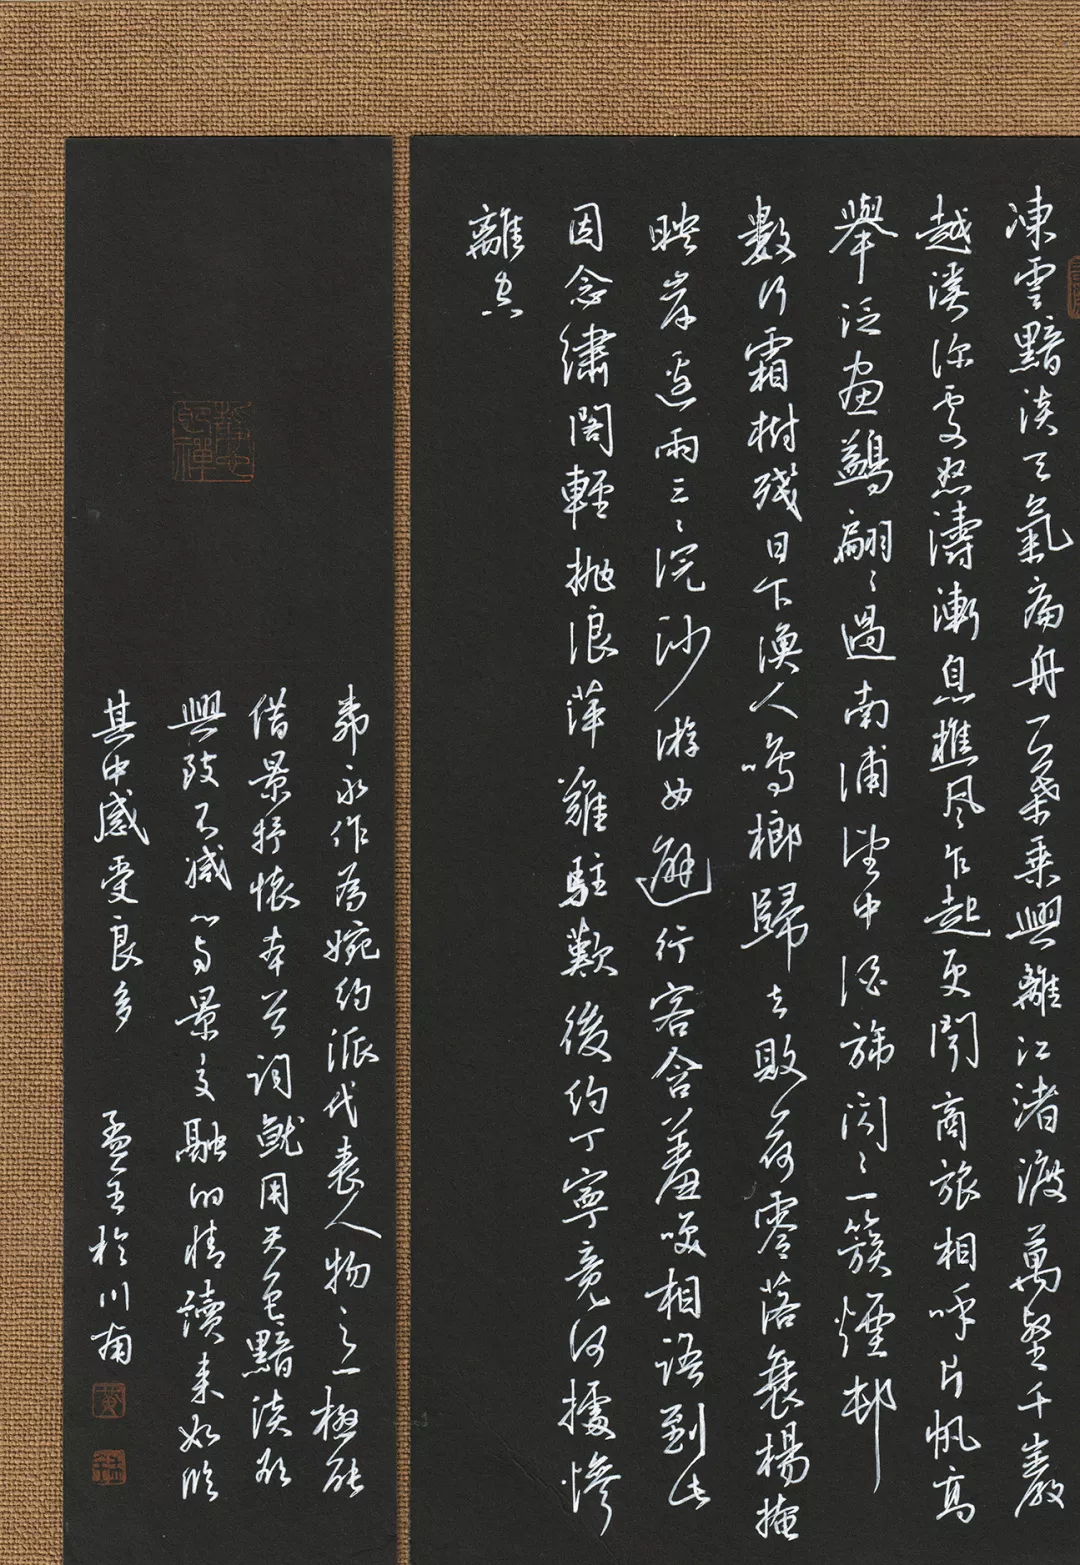 凍雲黯淡天氣扁舟一葉乘興離江渚渡萬壑千巖
越溪深處怒濤漸息樵風乍起更聞商旅相呼片帆高
舉泛畫鷁翩〻過南浦望中酒旆閃〻一簇煙邨
數行霜樹殘日下漁人鳴榔歸去敗荷零落衰楊掩
映岸邊兩三〻浣沙游女避行客含羞笑相語到此
因念繡閣輕拋浪萍難駐歎後約丁寧竟何據慘
離
柳永作為婉約派代表人物之一極能
借景抒懷本首詞就用天色黯淡
興致不減心與景交融的情讀來如臨
其中感受良多 孟於川南